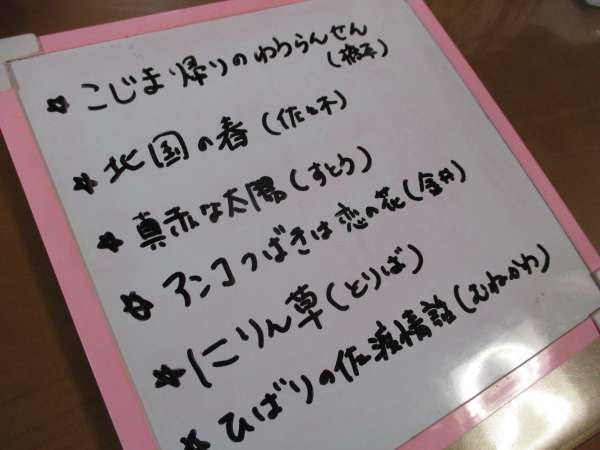 ☆ こじまり帰りのわりらんせん
(橋本)
☆ 北国の春(佐々木)
☆ 真赤な太陽(すとう)
☆ アンコつばきは恋の花(金井)
☆ にりん草(とりば)
☆ ひばりの佐渡情話(むねかわ)